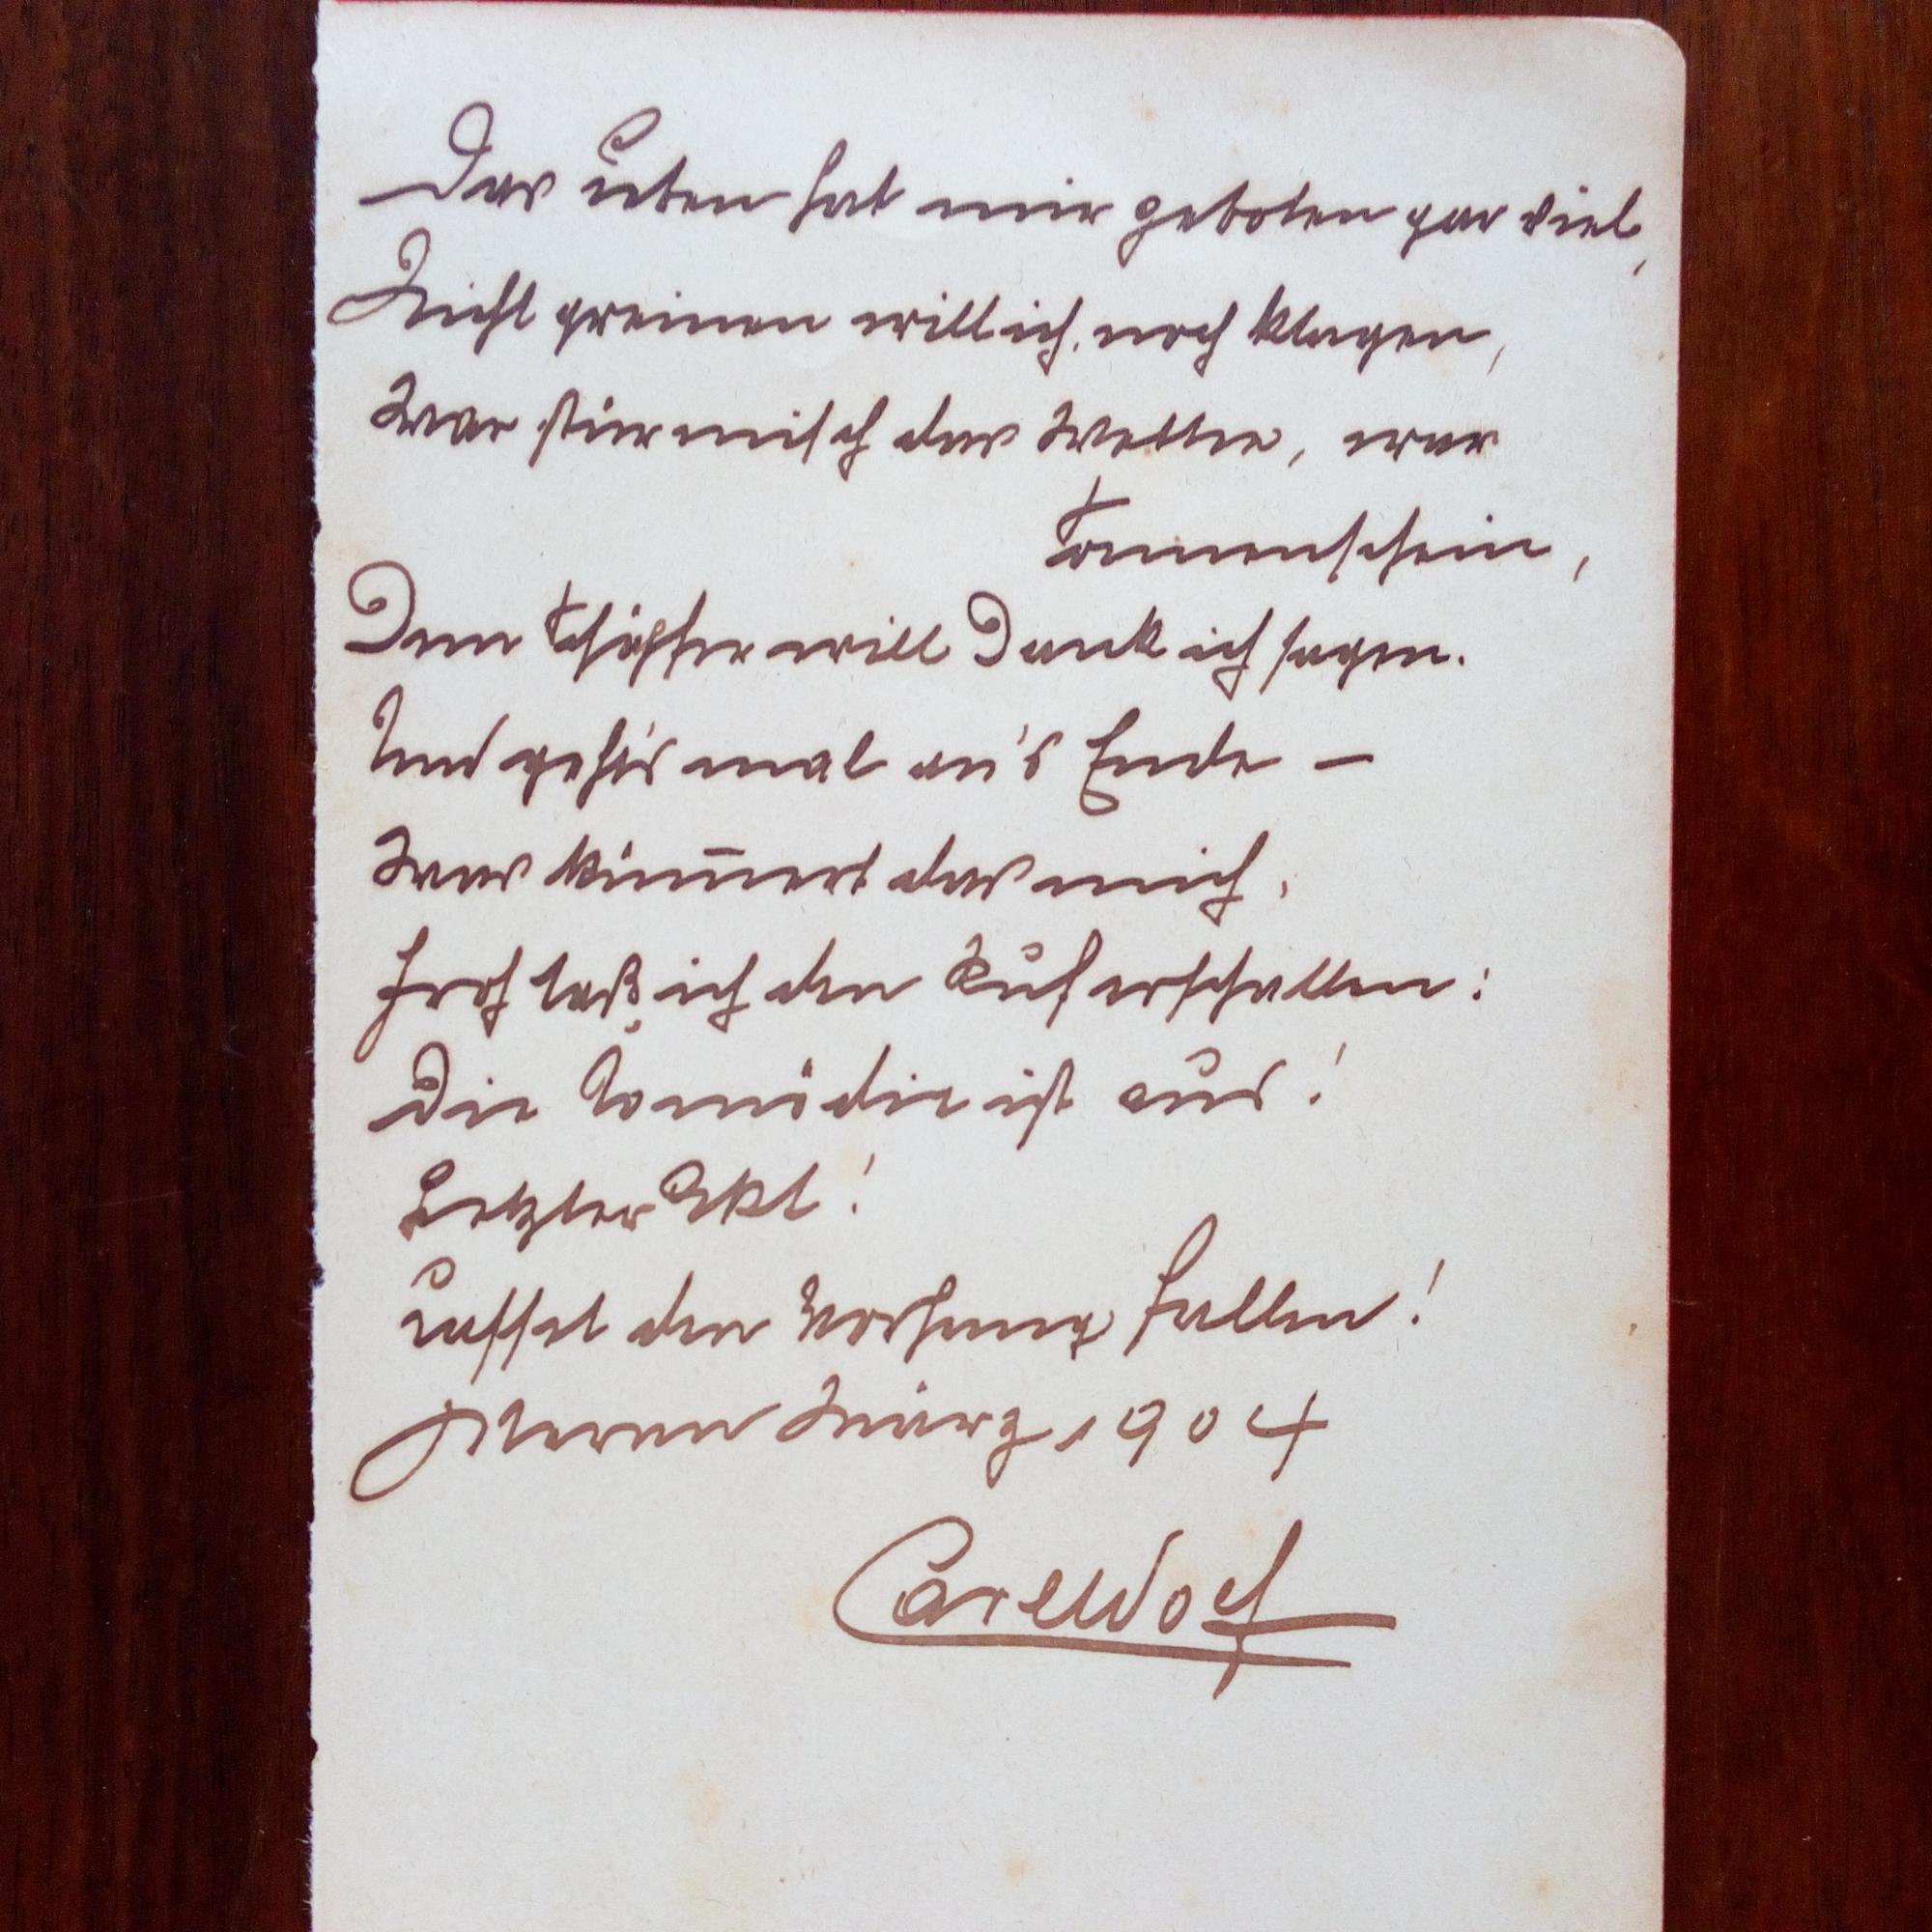 Das Leben hat mir geboten gar viel,
Nicht greinen will ich, noch klagen,
War stürmisch das Wetter, war
Sonnenschein,
Dem Schöpfer will Dank ich sagen.
Und geht's mal an's Ende –
Was küm̅ert das mich,
Froh laß ich den Ruf erschallen:
Die Komödie ist aus!
Letzter Akt!
Lasset den Vorhang fallen!
Meran März 1904
Carl Wolf